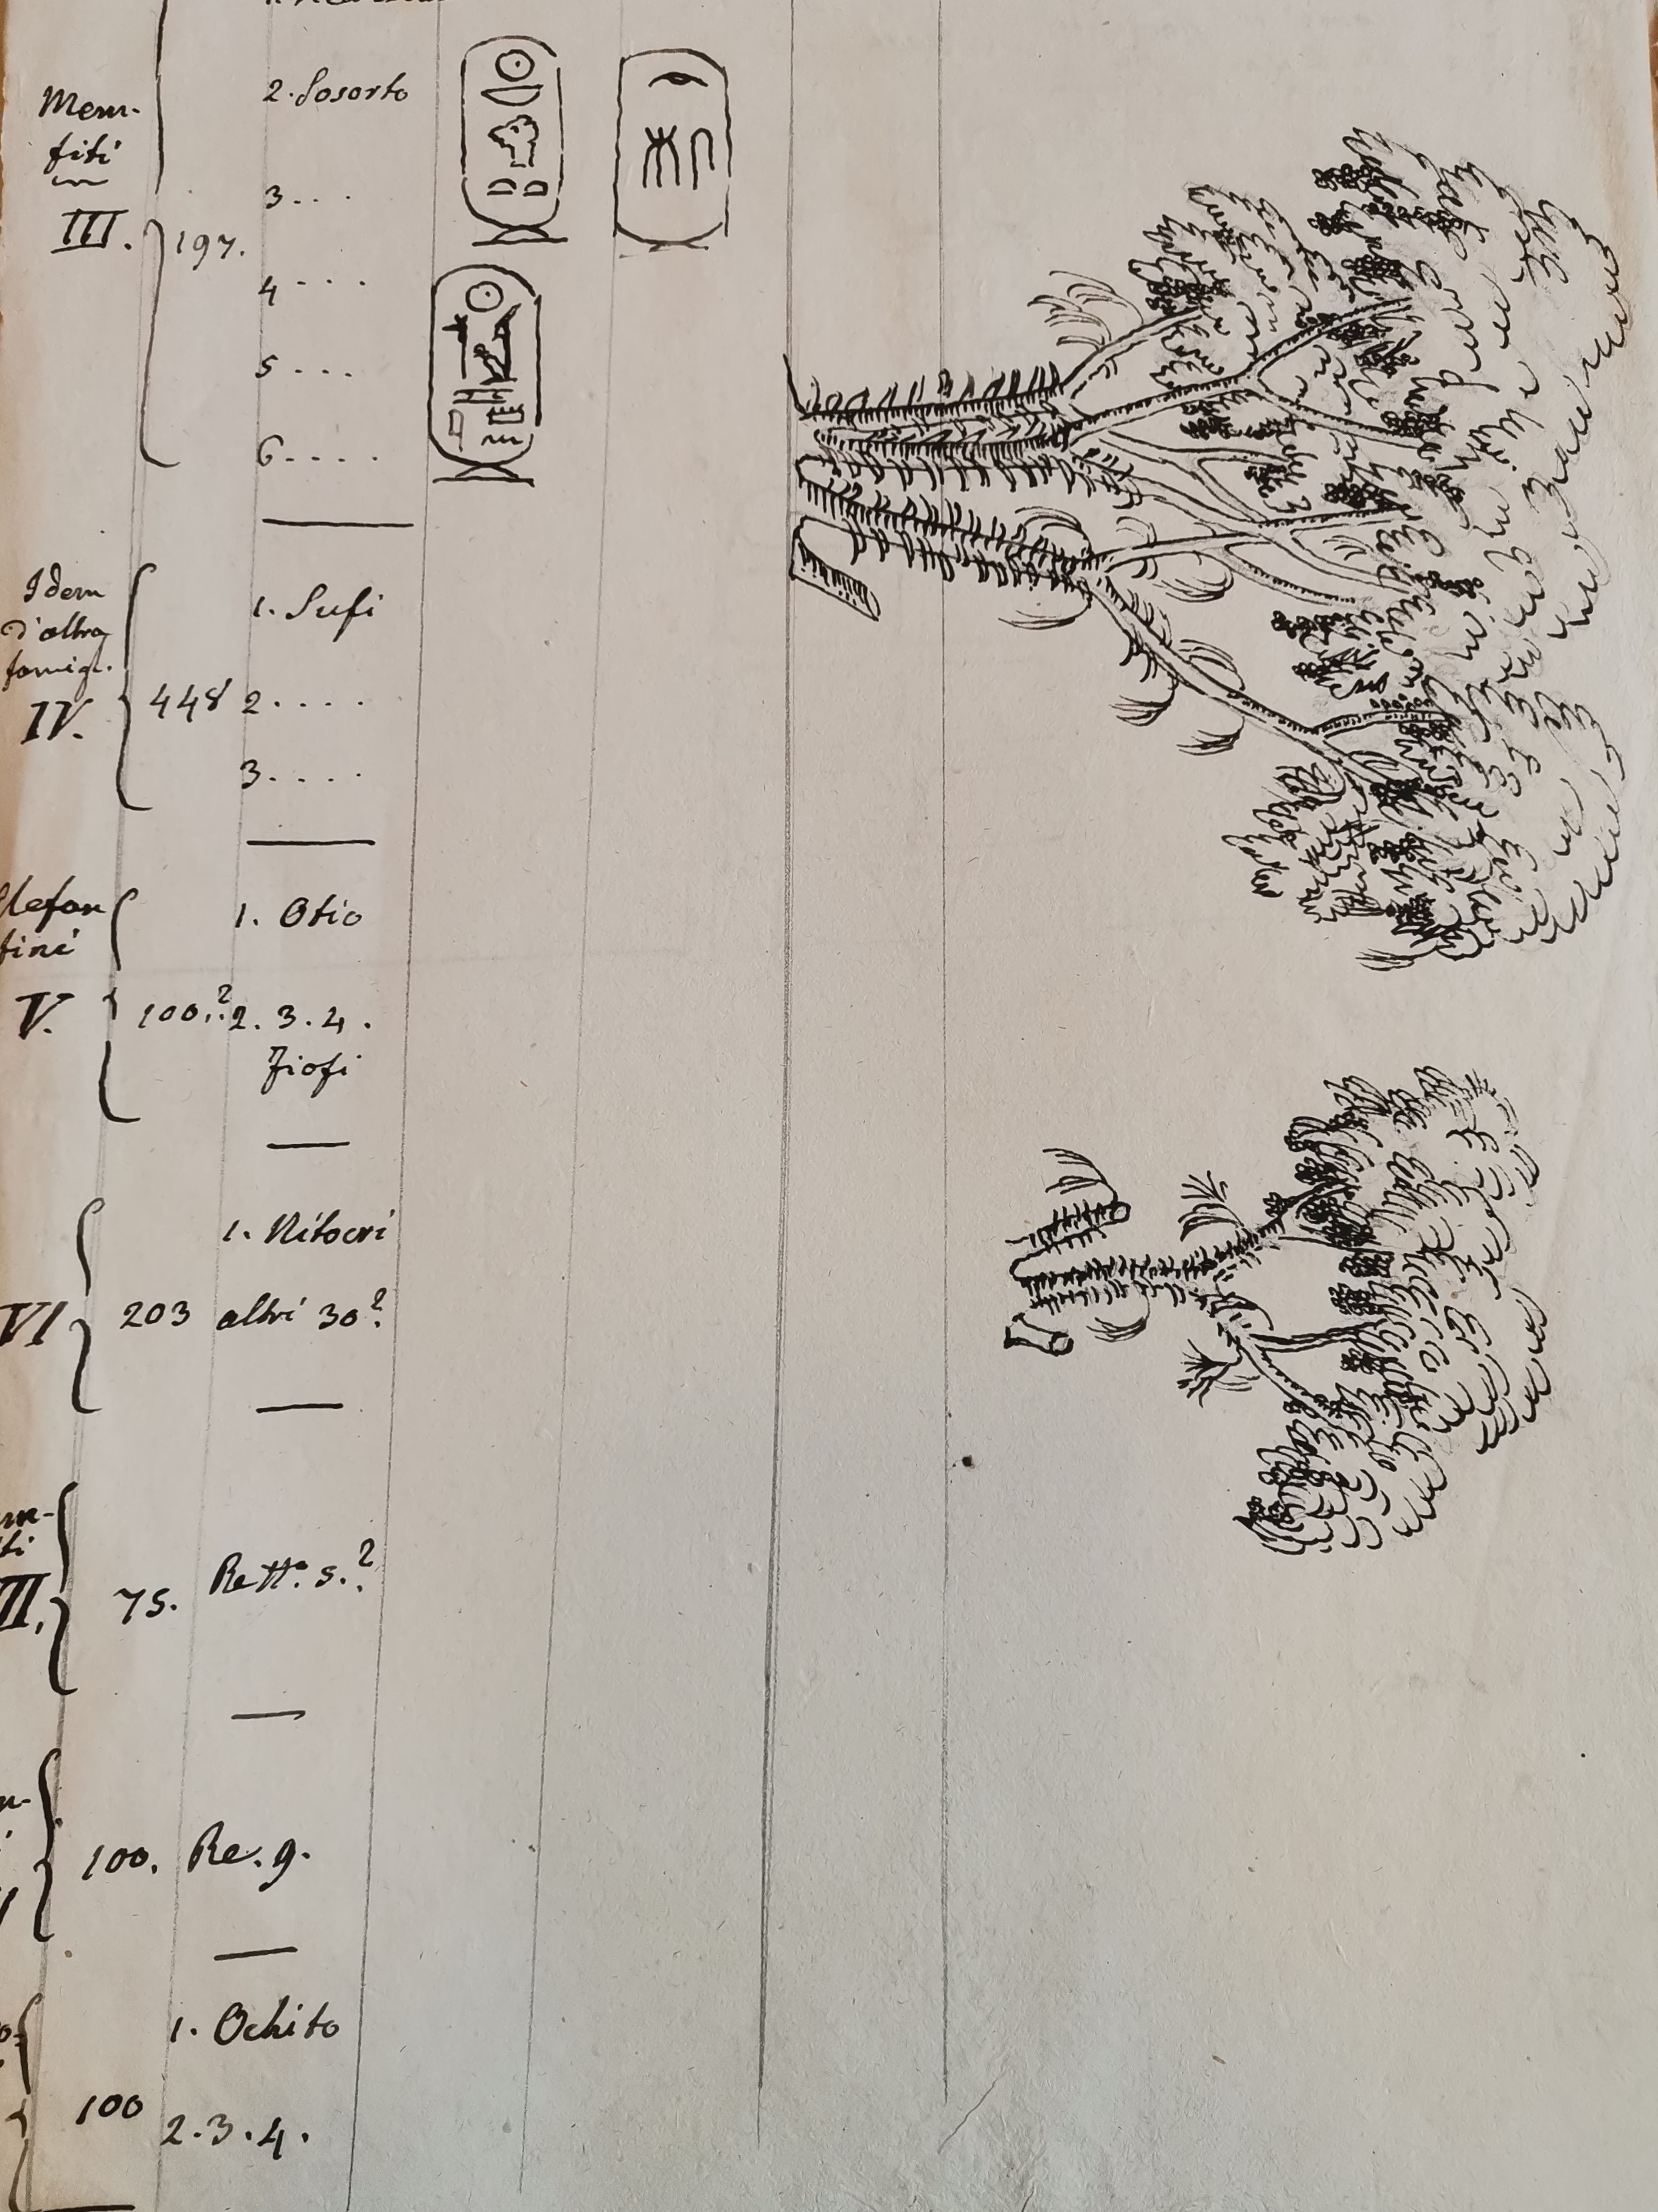 2. Sosorto
Mem-
fiti
III.
197.
3...
4...
5...
6....
1. Sufi
Idem
d'altra
famigl.
IV.
448
2....
3....
1. Otio
lefan
tini
V.
100.?
2.3.4.
Fiofi
1. Nitocri
VI
203
altri 30?
m-
ti
II.
75.
Re tt.i 5.?
100.
Re. 9.
1. Ochito
100
2.3.4.